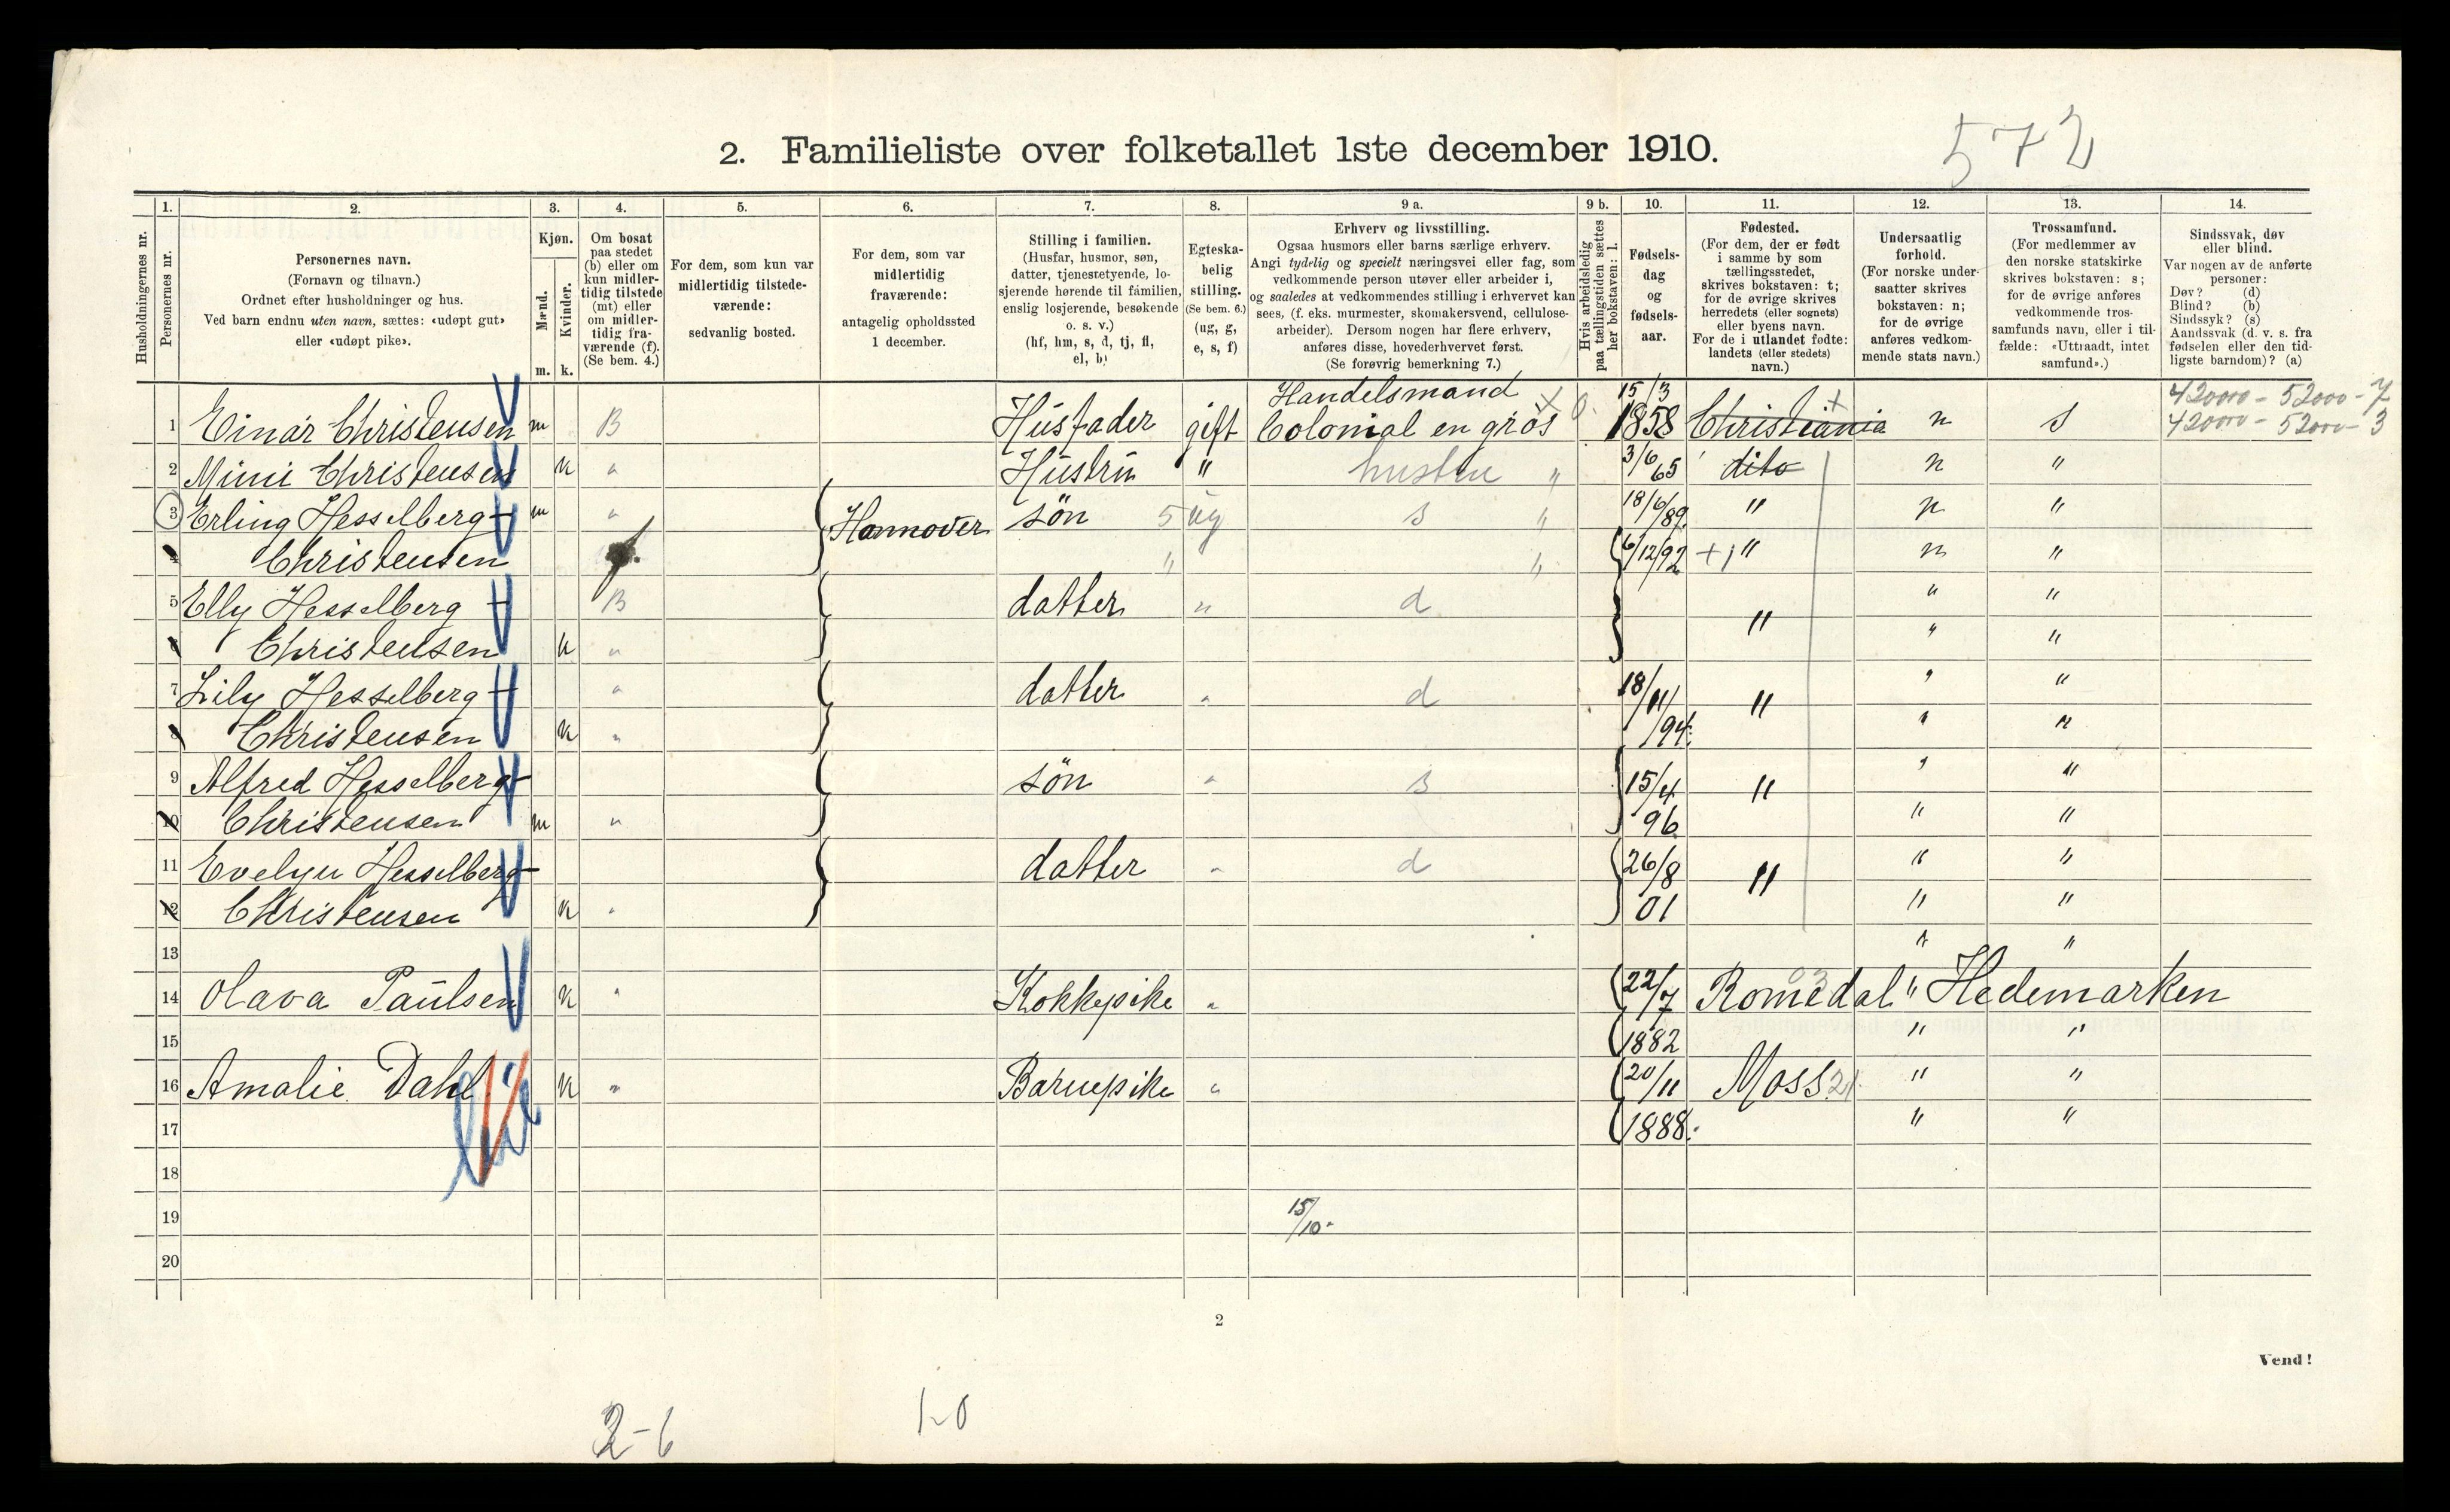 572
2. Familieliste over folketallet 1ste december 1910.
1. 2. 3. 4. 5. 6. 7. 8. 9 a. 9 b. 10. 11. 12. 13. 14.
Husholdningernes nr.
Personernes nr.
Personernes navn.
(Fornavn og tilnavn.)
Ordnet efter husholdninger og hus.
Ved barn endnu uten navn, sættes: «udøpt gut»
eller «udøpt pike».
Kjøn.
Mænd.
Kvinder.
m. k.
Om bosat
paa stedet
(b) eller om
kun midler-
tidig tilstede
(mt) eller
om midler-
tidig fra-
værende (f).
(Se bem. 4.)
For dem, som kun var
midlertidig tilstede-
værende:
sedvanlig bosted.
For dem, som var
midlertidig
fraværende:
antagelig opholdssted
1 december.
Stilling i familien.
(Husfar, husmor, søn,
datter, tjenestetyende, lo-
sjerende hørende til familien,
enslig losjerende, besøkende
o. s. v.)
(hf, hm, s, d, tj, fl,
el, b)
Egteska-
belig
stilling.
(Se bem. 6.)
(ug, g,
e, s, f)
Erhverv og livsstilling.
Ogsaa husmors eller barns særlige erhverv.
Angi tydelig og specielt næringsvei eller fag, som
vedkommende person utøver eller arbeider i,
og saaledes at vedkommendes stilling i erhvervet kan
sees, (f. eks. murmester, skomakersvend, cellulose-
arbeider). Dersom nogen har flere erhverv,
anføres disse, hovederhvervet først.
(Se forøvrig bemerkning 7.)
Hvis arbeidsledig
paa tællingstiden sættes
her bokstaven: l.
Fødsels-
dag
og
fødsels-
aar.
Fødested.
(For dem, der er født
i samme by som
tællingsstedet,
skrives bokstaven: t;
for de øvrige skrives
herredets (eller sognets)
eller byens navn.
For de i utlandet fødte:
landets (eller stedets)
navn.)
Undersaatlig
forhold.
(For norske under-
saatter skrives
bokstaven: n;
for de øvrige
anføres vedkom-
mende stats navn.)
Trossamfund.
(For medlemmer av
den norske statskirke
skrives bokstaven: s;
for de øvrige anføres
vedkommende tros-
samfunds navn, eller i til-
fælde: «Uttraadt, intet
samfund».)
Sindssvak, døv
eller blind.
Var nogen av de anførte
personer:
Døv? (d)
Blind? (b)
Sindssyk? (s)
Aandssvak (d. v. s. fra
fødselen eller den tid-
ligste barndom)? (a)
Handelsmand 15/3 42000 - 52000 - 7
1 Einar Christensen m B Husfader gift Colonial en gros 1858 Christiania n s 42000 - 52000 - 3
2 Mimi Christensen k " Hustru " hustru " 3/6 65 dito n "
3 Erling Hesselberg- m " Hannover søn 5 ug s " 18/6/89. " n "
4 Christensen " " 6/12/92 + " n "
5 Elly Hesselberg - B datter " d " " "
6 Christensen k " " "
7 Lily Hesselberg- " datter " d 18/11/ " " "
8 Christensen k " /94. " "
9 Alfred Hesselberg- søn " s 15/4 " " "
10 Christensen m " 96 " "
11 Evelyn Hesselberg- datter " d 26/8 " " "
12 Christensen k " 01 " "
13 " "
14 Olava Paulsen k " Kokkepike " 22/7 Romedal " Hedemarken
15 1882 " "
16 Amalie Dahl k " Barnepike " 20/11 Moss " "
17 1888. " "
18
19 15/10-
20
2
Vend!
2-6
1-0